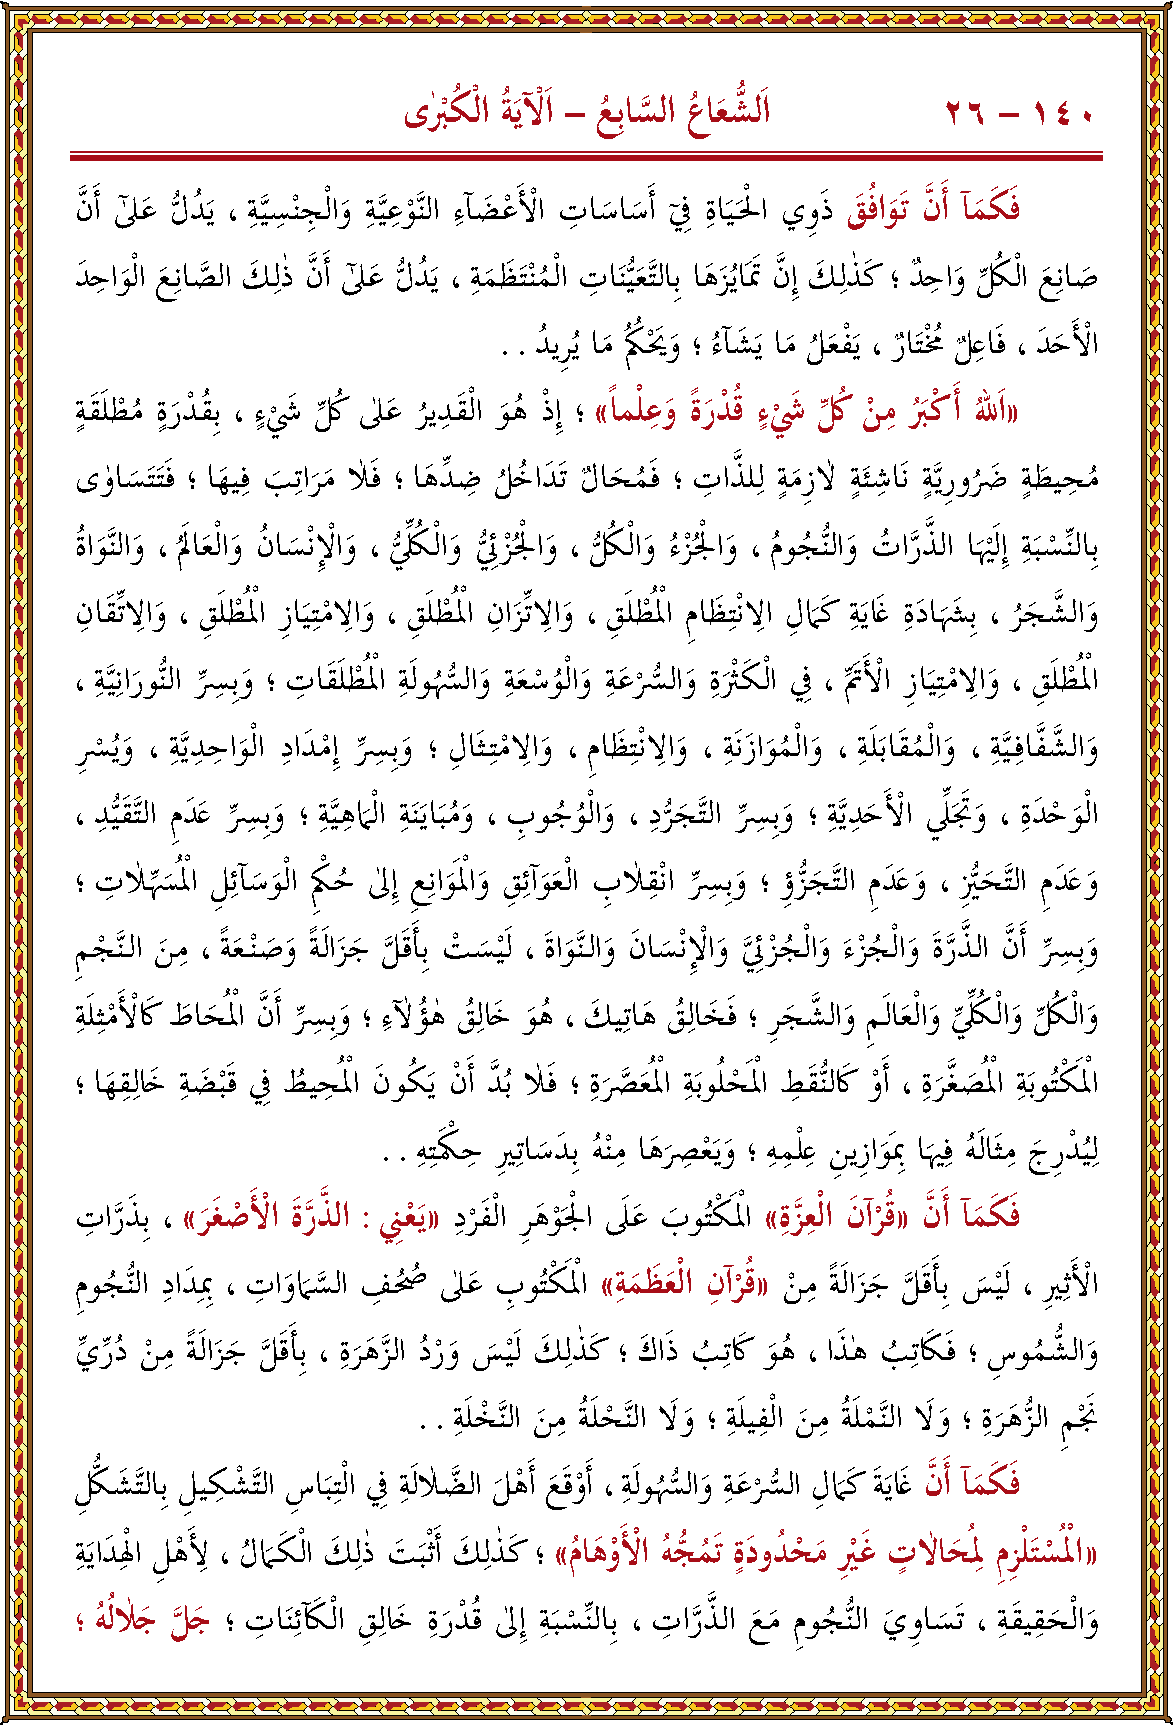 ١٤٠ – ٢٦ اَلشُّعَاعُ السَّابِعُ – اَلْآيَةُ الْكُبْرٰى
فَكَمَآ أَنَّ تَوَافُقَ ذَوِي الْحَيَاةِ فِيٓ أَسَاسَاتِ الْأَعْضَآءِ النَّوْعِيَّةِ وَالْجِنْسِيَّةِ ، يَدُلُّ عَلٰٓى أَنَّ
صَانِعَ الْكُلِّ وَاحِدٌ ؛ كَذٰلِكَ إِنَّ تَمَايُزَهَا بِالتَّعَيُّنَاتِ الْمُنْتَظَمَةِ ، يَدُلُّ عَلٰٓى أَنَّ ذٰلِكَ الصَّانِعَ الْوَاحِدَ
الْأَحَدَ ، فَاعِلٌ مُخْتَارٌ ، يَفْعَلُ مَا يَشَآءُ ؛ وَيَحْكُمُ مَا يُرِيدُ . .
«اَللهُ أَكْبَرُ مِنْ كُلِّ شَيْءٍ قُدْرَةً وَعِلْماً» ؛ إِذْ هُوَ الْقَدِيرُ عَلٰى كُلِّ شَيْءٍ ، بِقُدْرَةٍ مُطْلَقَةٍ
مُحِيطَةٍ ضَرُورِيَّةٍ نَاشِئَةٍ لَازِمَةٍ لِلذَّاتِ ؛ فَمُحَالٌ تَدَاخُلُ ضِدِّهَا ؛ فَلَا مَرَاتِبَ فِيهَا ؛ فَتَتَسَاوٰى
بِالنِّسْبَةِ إِلَيْهَا الذَّرَّاتُ وَالنُّجُومُ ، وَالْجُزْءُ وَالْكُلُّ ، وَالْجُزْئِيُّ وَالْكُلِّيُّ ، وَالْإِنْسَانُ وَالْعَالَمُ ، وَالنَّوَاةُ
وَالشَّجَرُ ، بِشَهَادَةِ غَايَةِ كَمَالِ الِانْتِظَامِ الْمُطْلَقِ ، وَالِاتِّزَانِ الْمُطْلَقِ ، وَالِامْتِيَازِ الْمُطْلَقِ ، وَالِاتِّقَانِ
الْمُطْلَقِ ، وَالِامْتِيَازِ الْأَتَمِّ ، فِي الْكَثْرَةِ وَالسُّرْعَةِ وَالْوُسْعَةِ وَالسُّهُولَةِ الْمُطْلَقَاتِ ؛ وَبِسِرِّ النُّورَانِيَّةِ ،
وَالشَّفَّافِيَّةِ ، وَالْمُقَابَلَةِ ، وَالْمُوَازَنَةِ ، وَالِانْتِظَامِ ، وَالِامْتِثَالِ ؛ وَبِسِرِّ إِمْدَادِ الْوَاحِدِيَّةِ ، وَيُسْرِ
الْوَحْدَةِ ، وَتَجَلِّي الْأَحَدِيَّةِ ؛ وَبِسِرِّ التَّجَرُّدِ ، وَالْوُجُوبِ ، وَمُبَايَنَةِ الْمَاهِيَّةِ ؛ وَبِسِرِّ عَدَمِ التَّقَيُّدِ ،
وَعَدَمِ التَّحَيُّزِ ، وَعَدَمِ التَّجَزُّؤِ ؛ وَبِسِرِّ انْقِلَابِ الْعَوَآئِقِ وَالْمَوَانِعِ إِلٰى حُكْمِ الْوَسَآئِلِ الْمُسَهِّلَاتِ ؛
وَبِسِرِّ أَنَّ الذَّرَّةَ وَالْجُزْءَ وَالْجُزْئِيَّ وَالْإِنْسَانَ وَالنَّوَاةَ ، لَيْسَتْ بِأَقَلَّ جَزَالَةً وَصَنْعَةً ، مِنَ النَّجْمِ
وَالْكُلِّ وَالْكُلِّيِّ وَالْعَالَمِ وَالشَّجَرِ ؛ فَخَالِقُ هَاتِيكَ ، هُوَ خَالِقُ هٰؤُلَآءِ ؛ وَبِسِرِّ أَنَّ الْمُحَاطَ كَالْأَمْثِلَةِ
الْمَكْتُوبَةِ الْمُصَغَّرَةِ ، أَوْ كَالنُّقَطِ الْمَحْلُوبَةِ الْمُعَصَّرَةِ ؛ فَلَا بُدَّ أَنْ يَكُونَ الْمُحِيطُ فِي قَبْضَةِ خَالِقِهَا ؛
لِيُدْرِجَ مِثَالَهُ فِيهَا بِمَوَازِينِ عِلْمِهِ ؛ وَيَعْصِرَهَا مِنْهُ بِدَسَاتِيرِ حِكْمَتِهِ . .
فَكَمَآ أَنَّ «قُرْآنَ الْعِزَّةِ» الْمَكْتُوبَ عَلَى الْجَوْهَرِ الْفَرْدِ «يَعْنِي : الذَّرَّةَ الْأَصْغَرَ» ، بِذَرَّاتِ
الْأَثِيرِ ، لَيْسَ بِأَقَلَّ جَزَالَةً مِنْ «قُرْآنِ الْعَظَمَةِ» الْمَكْتُوبِ عَلٰى صُحُفِ السَّمَاوَاتِ ، بِمِدَادِ النُّجُومِ
وَالشُّمُوسِ ؛ فَكَاتِبُ هٰذَا ، هُوَ كَاتِبُ ذَاكَ ؛ كَذٰلِكَ لَيْسَ وَرْدُ الزَّهَرَةِ ، بِأَقَلَّ جَزَالَةً مِنْ دُرِّيِّ
نَجْمِ الزُّهَرَةِ ؛ وَلَا النَّمْلَةُ مِنَ الْفِيلَةِ ؛ وَلَا النَّحْلَةُ مِنَ النَّخْلَةِ . .
فَكَمَآ أَنَّ غَايَةَ كَمَالِ السُّرْعَةِ وَالسُّهُولَةِ ، أَوْقَعَ أَهْلَ الضَّلَالَةِ فِي الْتِبَاسِ التَّشْكِيلِ بِالتَّشَكُّلِ
«الْمُسْتَلْزِمِ لِمُحَالَاتٍ غَيْرِ مَحْدُودَةٍ تَمُجُّهُ الْأَوْهَامُ» ؛ كَذٰلِكَ أَثْبَتَ ذٰلِكَ الْكَمَالُ ، لِأَهْلِ الْهِدَايَةِ
وَالْحَقِيقَةِ ، تَسَاوِيَ النُّجُومِ مَعَ الذَّرَّاتِ ، بِالنِّسْبَةِ إِلٰى قُدْرَةِ خَالِقِ الْكَآئِنَاتِ ؛ جَلَّ جَلَالُهُ ؛